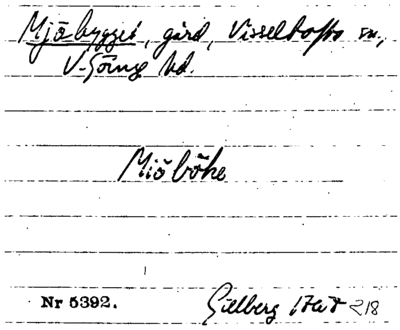 Mjöbygget, gård, Visseltofta sn,
V. Göinge hd.
Miöböke
Nr 5392.
Gillberg 218